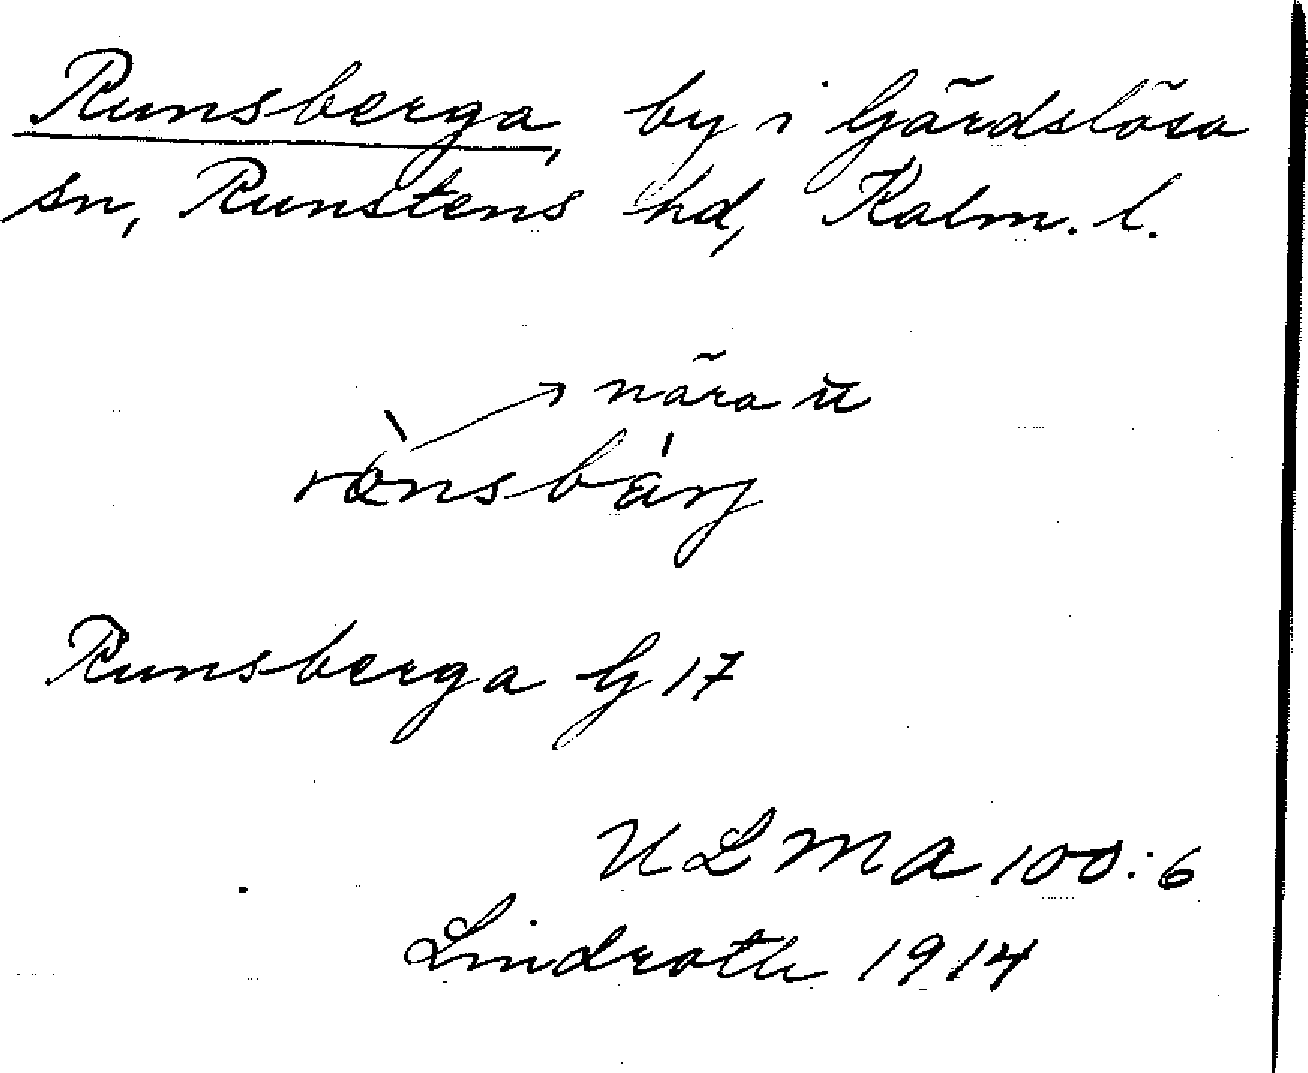 Runsberga, by i Gärdslösa
sn, Runstens hd, Kalm. l.
nära u
Runsberga G 17
ULMA 100:6
Lindroth 1914